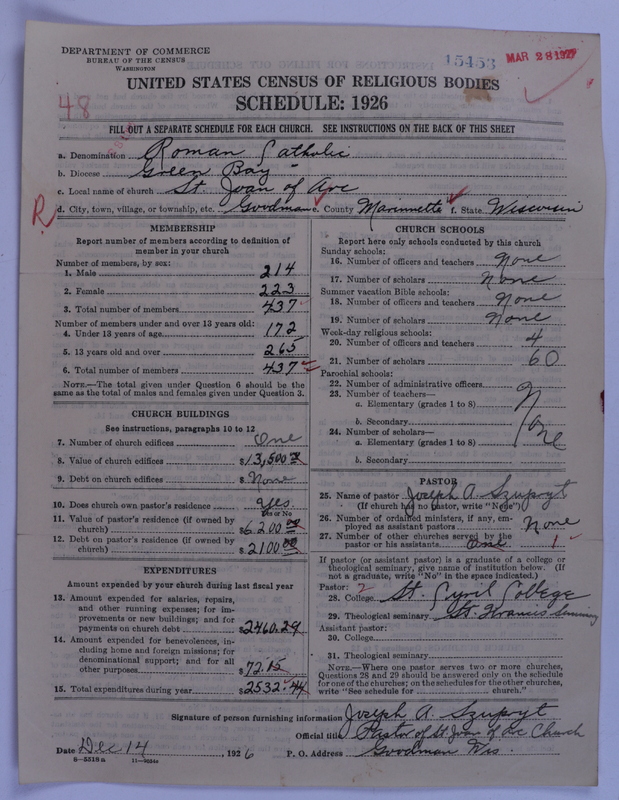 DEPARTMENT OF COMMERCE
BUREAU OF THE CENSUS
WASHINGTON
15453
MAR 28 1927
48
UNITED STATES CENSUS OF RELIGIOUS BODIES
SCHEDULE: 1926
FILL OUT A SEPARATE SCHEDULE FOR EACH CHURCH. SEE INSTRUCTIONS ON THE BACK OF THIS SHEET
a. Denomination Roman Catholic
b. Diocese Green Bay
c. Local name of church St Joan of Arc
R d. City, town, village, or township, etc. Goodman e. County Marinette f. State Wisconsin
MEMBERSHIP
Report number of members according to definition of
member in your church
Number of members, by sex:
1. Male 214
2. Female 223
3. Total number of members 437
Number of members under and over 13 years old:
4. Under 13 years of age 172
5. 13 years old and over 265
6. Total number of members 437
NOTE.—The total given under Question 6 should be the
same as the total of males and females given under Question 3.
CHURCH BUILDINGS
See instructions, paragraphs 10 to 12
7. Number of church edifices One
8. Value of church edifices $13,500
9. Debt on church edifices $ None
10. Does church own pastor's residence Yes
Yes or No
11. Value of pastor's residence (if owned by
church) $6200.00
12. Debt on pastor's residence (if owned by
church) $2100.00
EXPENDITURES
Amount expended by your church during last fiscal year
13. Amount expended for salaries, repairs,
and other running expenses; for im-
provements or new buildings; and for
payments on church debt $2460.29
14. Amount expended for benevolences, in-
cluding home and foreign missions; for
denominational support; and for all
other purposes $72.15
15. Total expenditures during year $2532.44
CHURCH SCHOOLS
Report here only schools conducted by this church
Sunday schools:
16. Number of officers and teachers None
17. Number of scholars None
Summer vacation Bible schools:
18. Number of officers and teachers None
19. Number of scholars None
Week-day religious schools:
20. Number of officers and teachers 4
21. Number of scholars 60
Parochial schools:
22. Number of administrative officers
23. Number of teachers—
a. Elementary (grades 1 to 8)
b. Secondary None
24. Number of scholars—
a. Elementary (grades 1 to 8)
b. Secondary
PASTOR
25. Name of pastor Joseph A. Szupryt
(If church has no pastor, write "None")
26. Number of ordained ministers, if any, em-
ployed as assistant pastors None
27. Number of other churches served by the
pastor or his assistants One 1
If pastor (or assistant pastor) is a graduate of a college or
theological seminary, give name of institution below. (If
not a graduate, write "No" in the space indicated.)
Pastor: 2
28. College St. Cyril College
29. Theological seminary St. Francis Seminary
Assistant pastor:
30. College
31. Theological seminary
NOTE.—Where one pastor serves two or more churches,
Questions 28 and 29 should be answered only on the schedule
for one of the churches; on the schedules for the other churches,
write "See schedule for church."
Signature of person furnishing information Joseph A. Szupryt
Official title Pastor of St Joan of Arc Church
Date Dec 14, 1926 P. O. Address Goodman Wis.
8—5318a 11—9024a